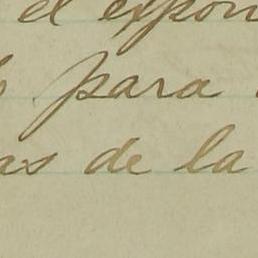 el expon
para
as de la